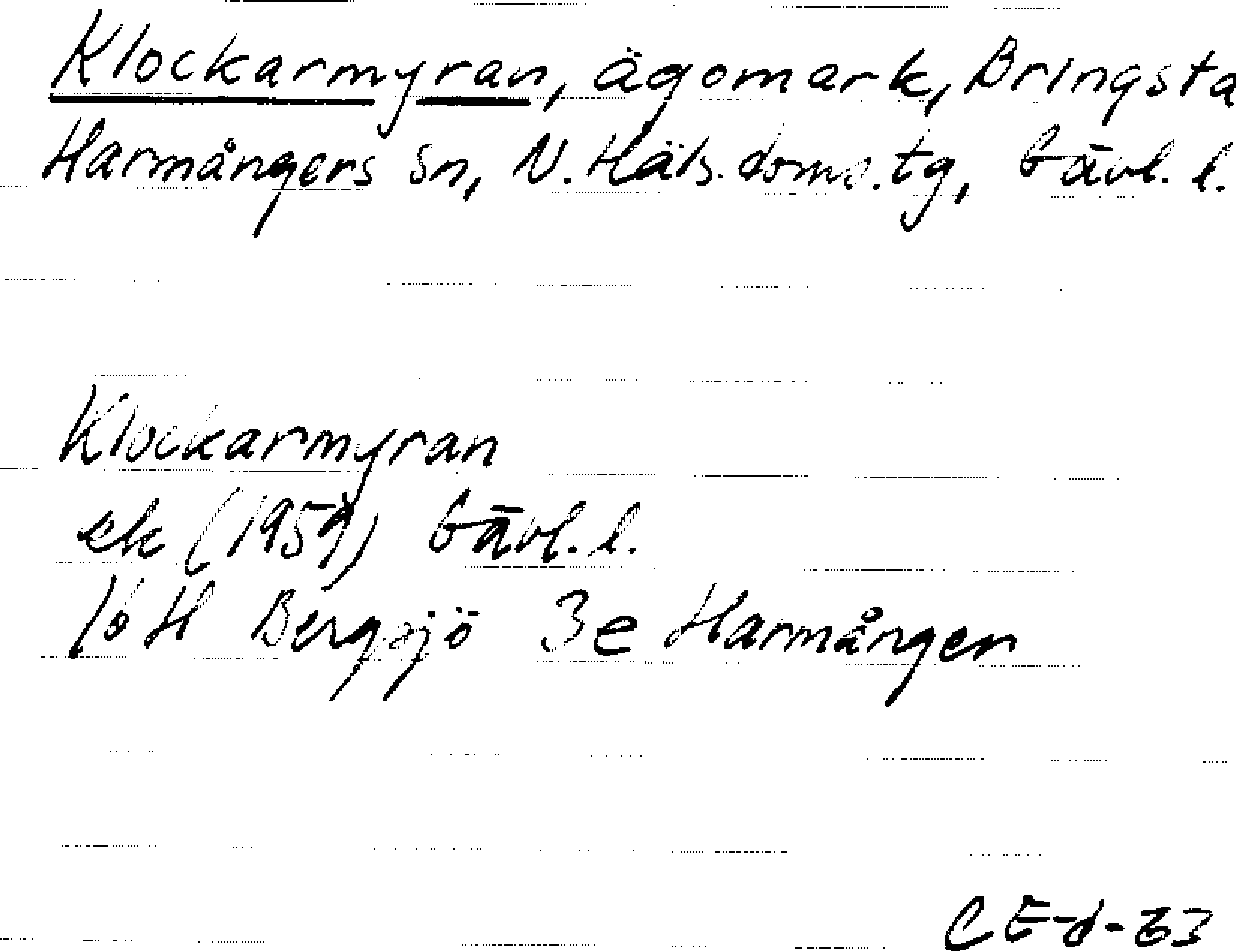 Klockarmyran, ägomark, Bringsta
Harmångers sn, N. Häls. doms. tg, Gävl. l.
Klockarmyran
ek (1959) Gävl. l.
16 H Bergsjö 3e Harmånger
CE-d-63